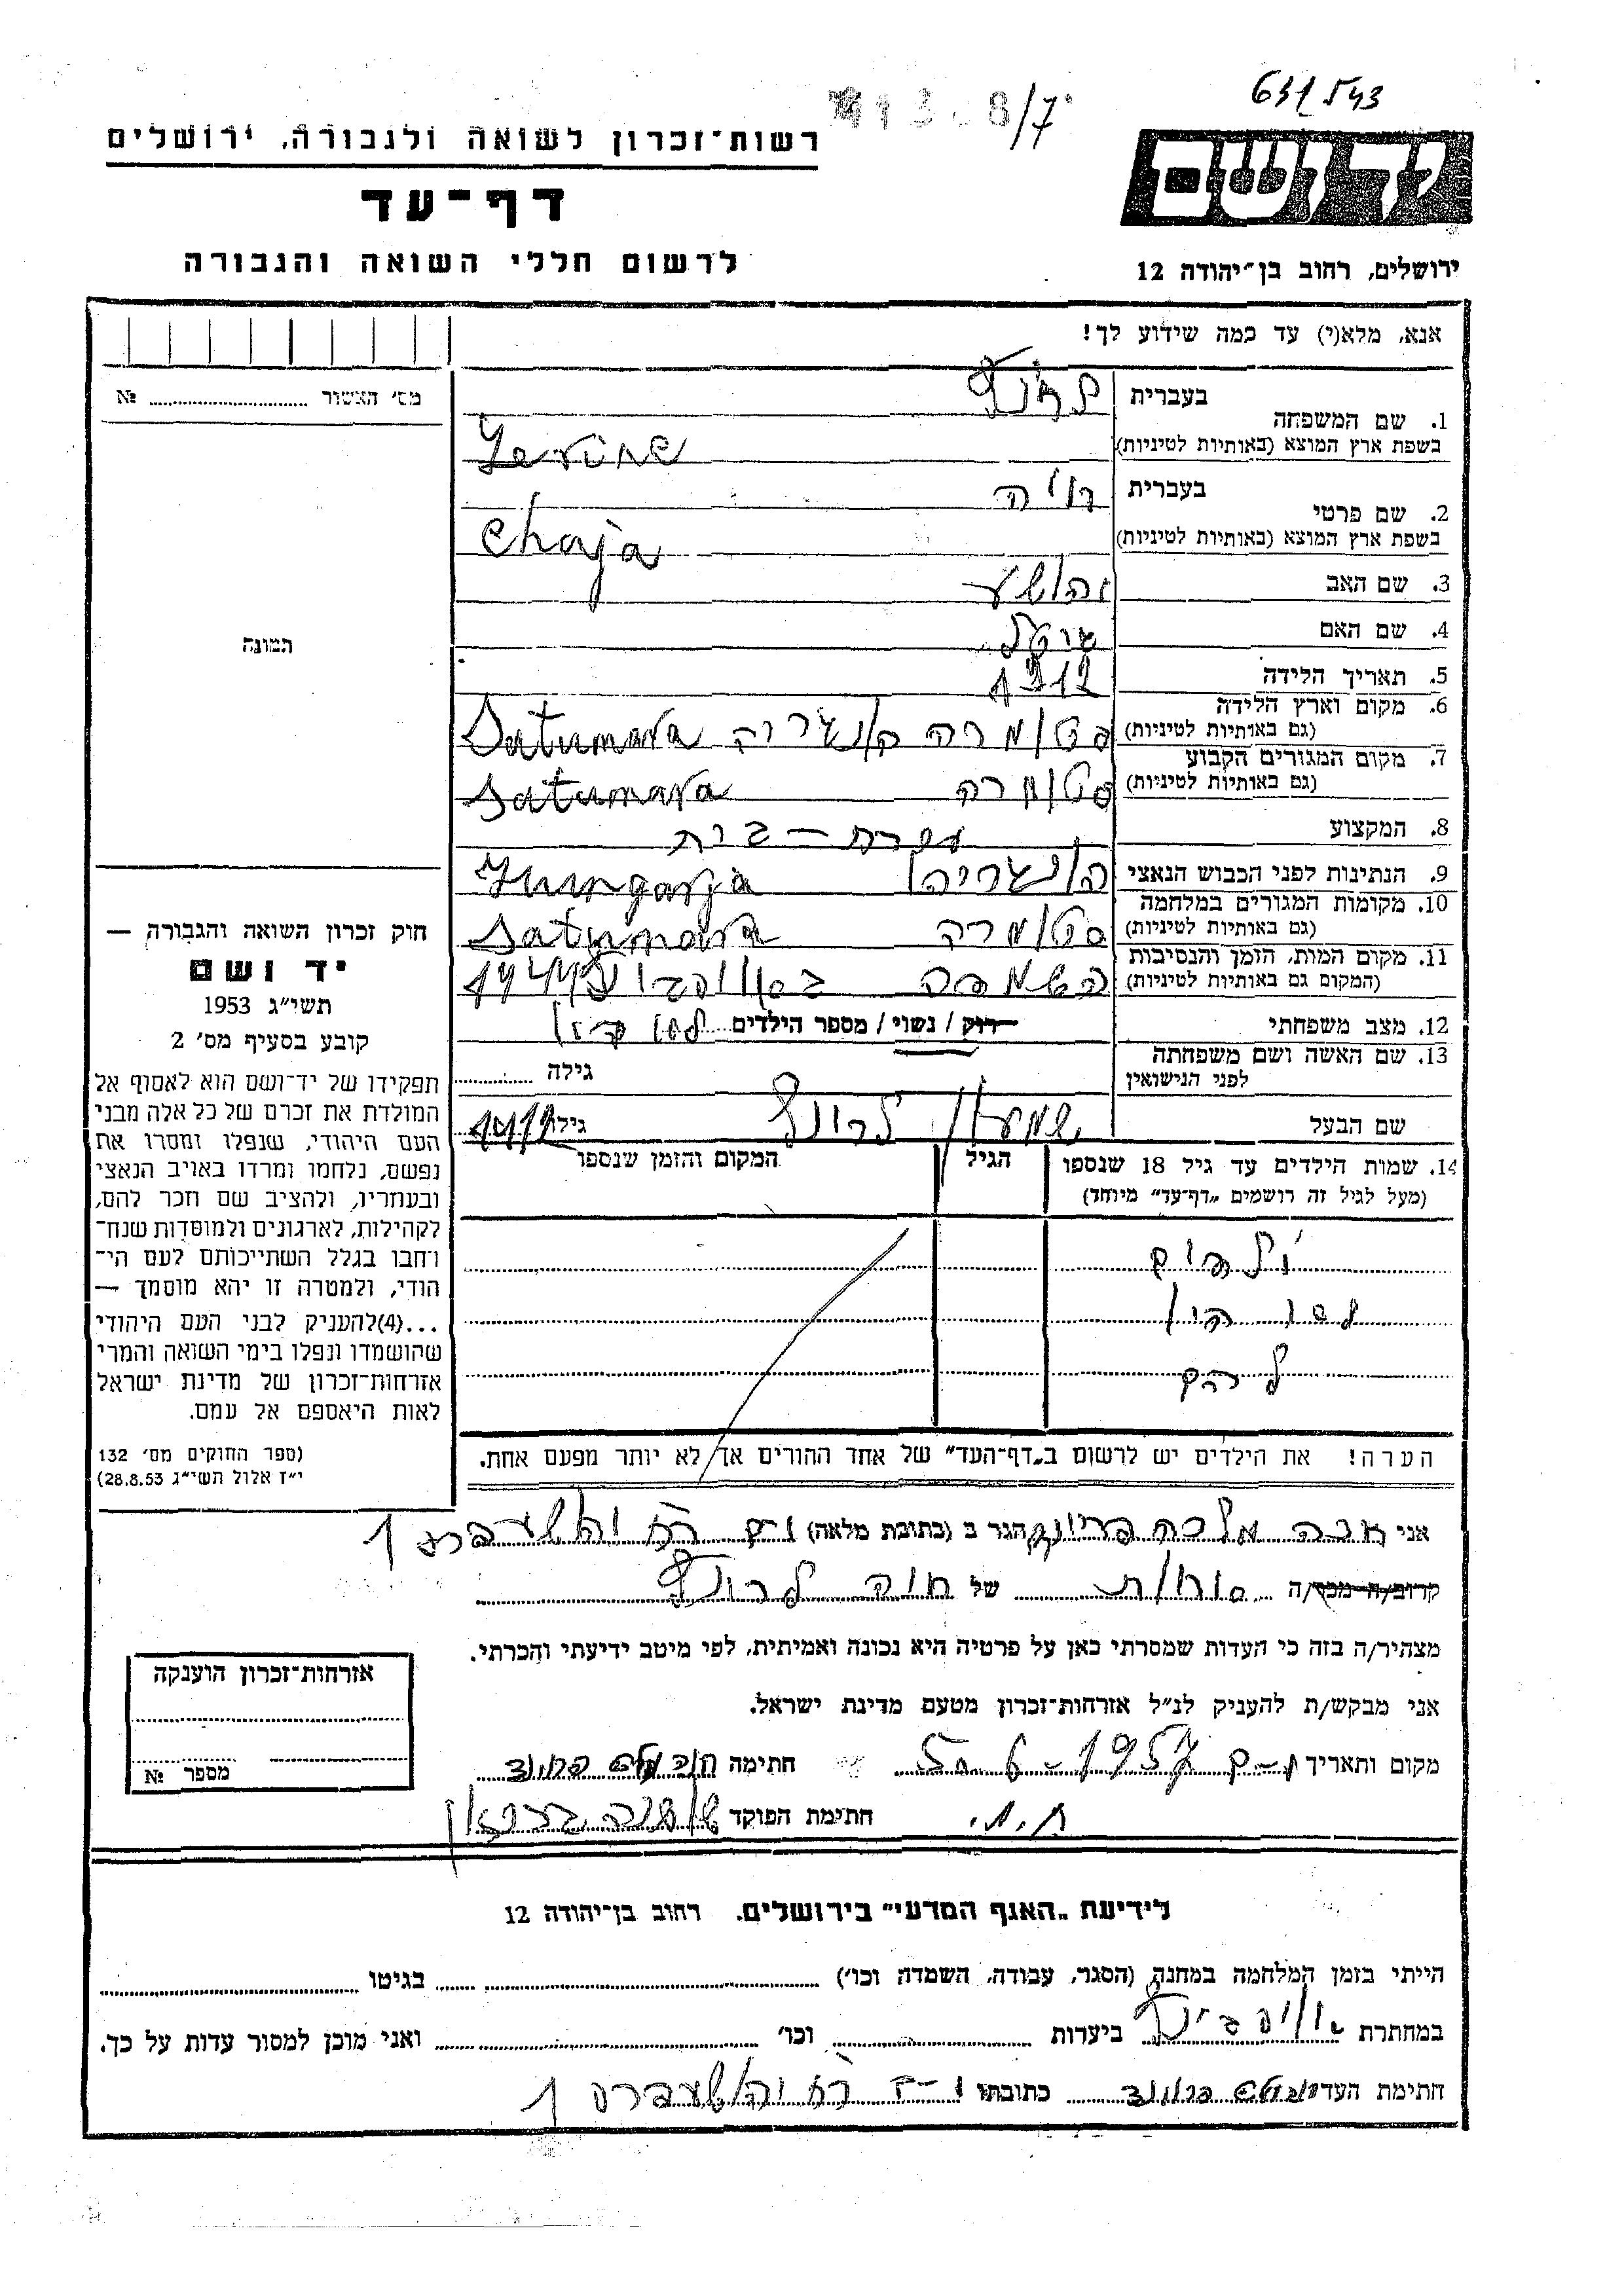 631543
41308/7
רשות־זכרון לשואה ולגבורה, ירושלים
יד ושם
דף־עד
לרשום חללי השואה והגבורה
ירושלים, רחוב בן־יהודה 12
אנא, מלא(י) עד כמה שידוע לך!
מס׳ האשור № 
1. שם המשפחה
בעברית
בשפת ארץ המוצא (באותיות לטיניות) Levine
2. שם פרטי
בעברית חיה
בשפת ארץ המוצא (באותיות לטיניות) Chaja
3. שם האב יהושע
4. שם האם
5. תאריך הלידה 1912
6. מקום וארץ הלידה
(גם באותיות לטיניות) סטומרה הונגריה Satumara
7. מקום המגורים הקבוע
(גם באותיות לטיניות) סטומרה Satumara
8. המקצוע עקרת־בית
9. הנתינות לפני הכבוש הנאצי הונגריה Hungarja
10. מקומות המגורים במלחמה
(גם באותיות לטיניות) סטומרה Satumara
11. מקום המות, הזמן והנסיבות
(המקום גם באותיות לטיניות) השמדה 1944
12. מצב משפחתי רווק / נשוי / מספר הילדים
13. שם האשה ושם משפחתה
לפני הנישואין
גילה
שם הבעל שמעון גילו
14. שמות הילדים עד גיל 18 שנספו
(מעל לגיל זה רושמים „דף־עד״ מיוחד)
הגיל
המקום והזמן שנספו
ילדים
הערה! את הילדים יש לרשום ב„דף־העד״ של אחד ההורים אך לא יותר מפעם אחת.
תמונה
חוק זכרון השואה והגבורה —
יד ושם
תשי״ג 1953
קובע בסעיף מס׳ 2
תפקידו של יד־ושם הוא לאסוף אל
המולדת את זכרם של כל אלה מבני
העם היהודי, שנפלו ומסרו את
נפשם, נלחמו ומרדו באויב הנאצי
ובעוזריו, ולהציב שם וזכר להם,
לקהילות, לארגונים ולמוסדות שנח־
רבו בגלל השתייכותם לעם הי־
הודי, ולמטרה זו יהא מוסמך —
...(4)להעניק לבני העם היהודי
שהושמדו ונפלו בימי השואה והמרי
אזרחות־זכרון של מדינת ישראל
לאות היאספם אל עמם.
(ספר החוקים מס׳ 132
י״ז אלול תשי״ג 28.8.53)
אני מלכה הגר ב (כתובת מלאה)
קרוב/ה מכר/ה של חיה
מצהיר/ה בזה כי העדות שמסרתי כאן על פרטיה היא נכונה ואמיתית, לפי מיטב ידיעתי והכרתי.
אני מבקש/ת להעניק לנ״ל אזרחות־זכרון מטעם מדינת ישראל.
מקום ותאריך 5-6-1957 חתימה
חתימת הפוקד
אזרחות־זכרון הוענקה
מספר №
לידיעת „האגף המדעי״ בירושלים. רחוב בן־יהודה 12
הייתי בזמן המלחמה במחנה (הסגר, עבודה, השמדה וכו׳) בגיטו
במחתרת ביערות וכו׳ ואני מוכן למסור עדות על כך.
חתימת העד כתובתי